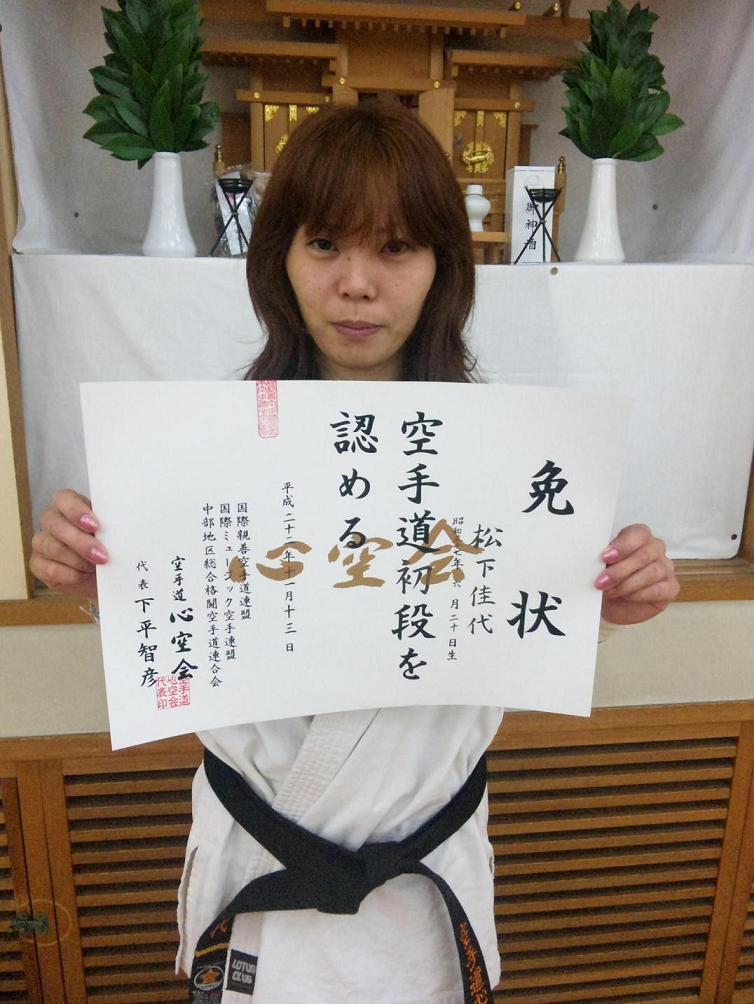 免状
松下佳代
昭和五十七年六月二十日生
空手道初段を
認める
平成二十二年十一月十三日
国際親善空手道連盟
国際ミュージック空手連盟
中部地区総合格闘空手道連合会
空手道 心空会
代表 下平智彦
心空会
空手道
心空会
代表印
御神酒
LOTUS
CLUB
空手道心